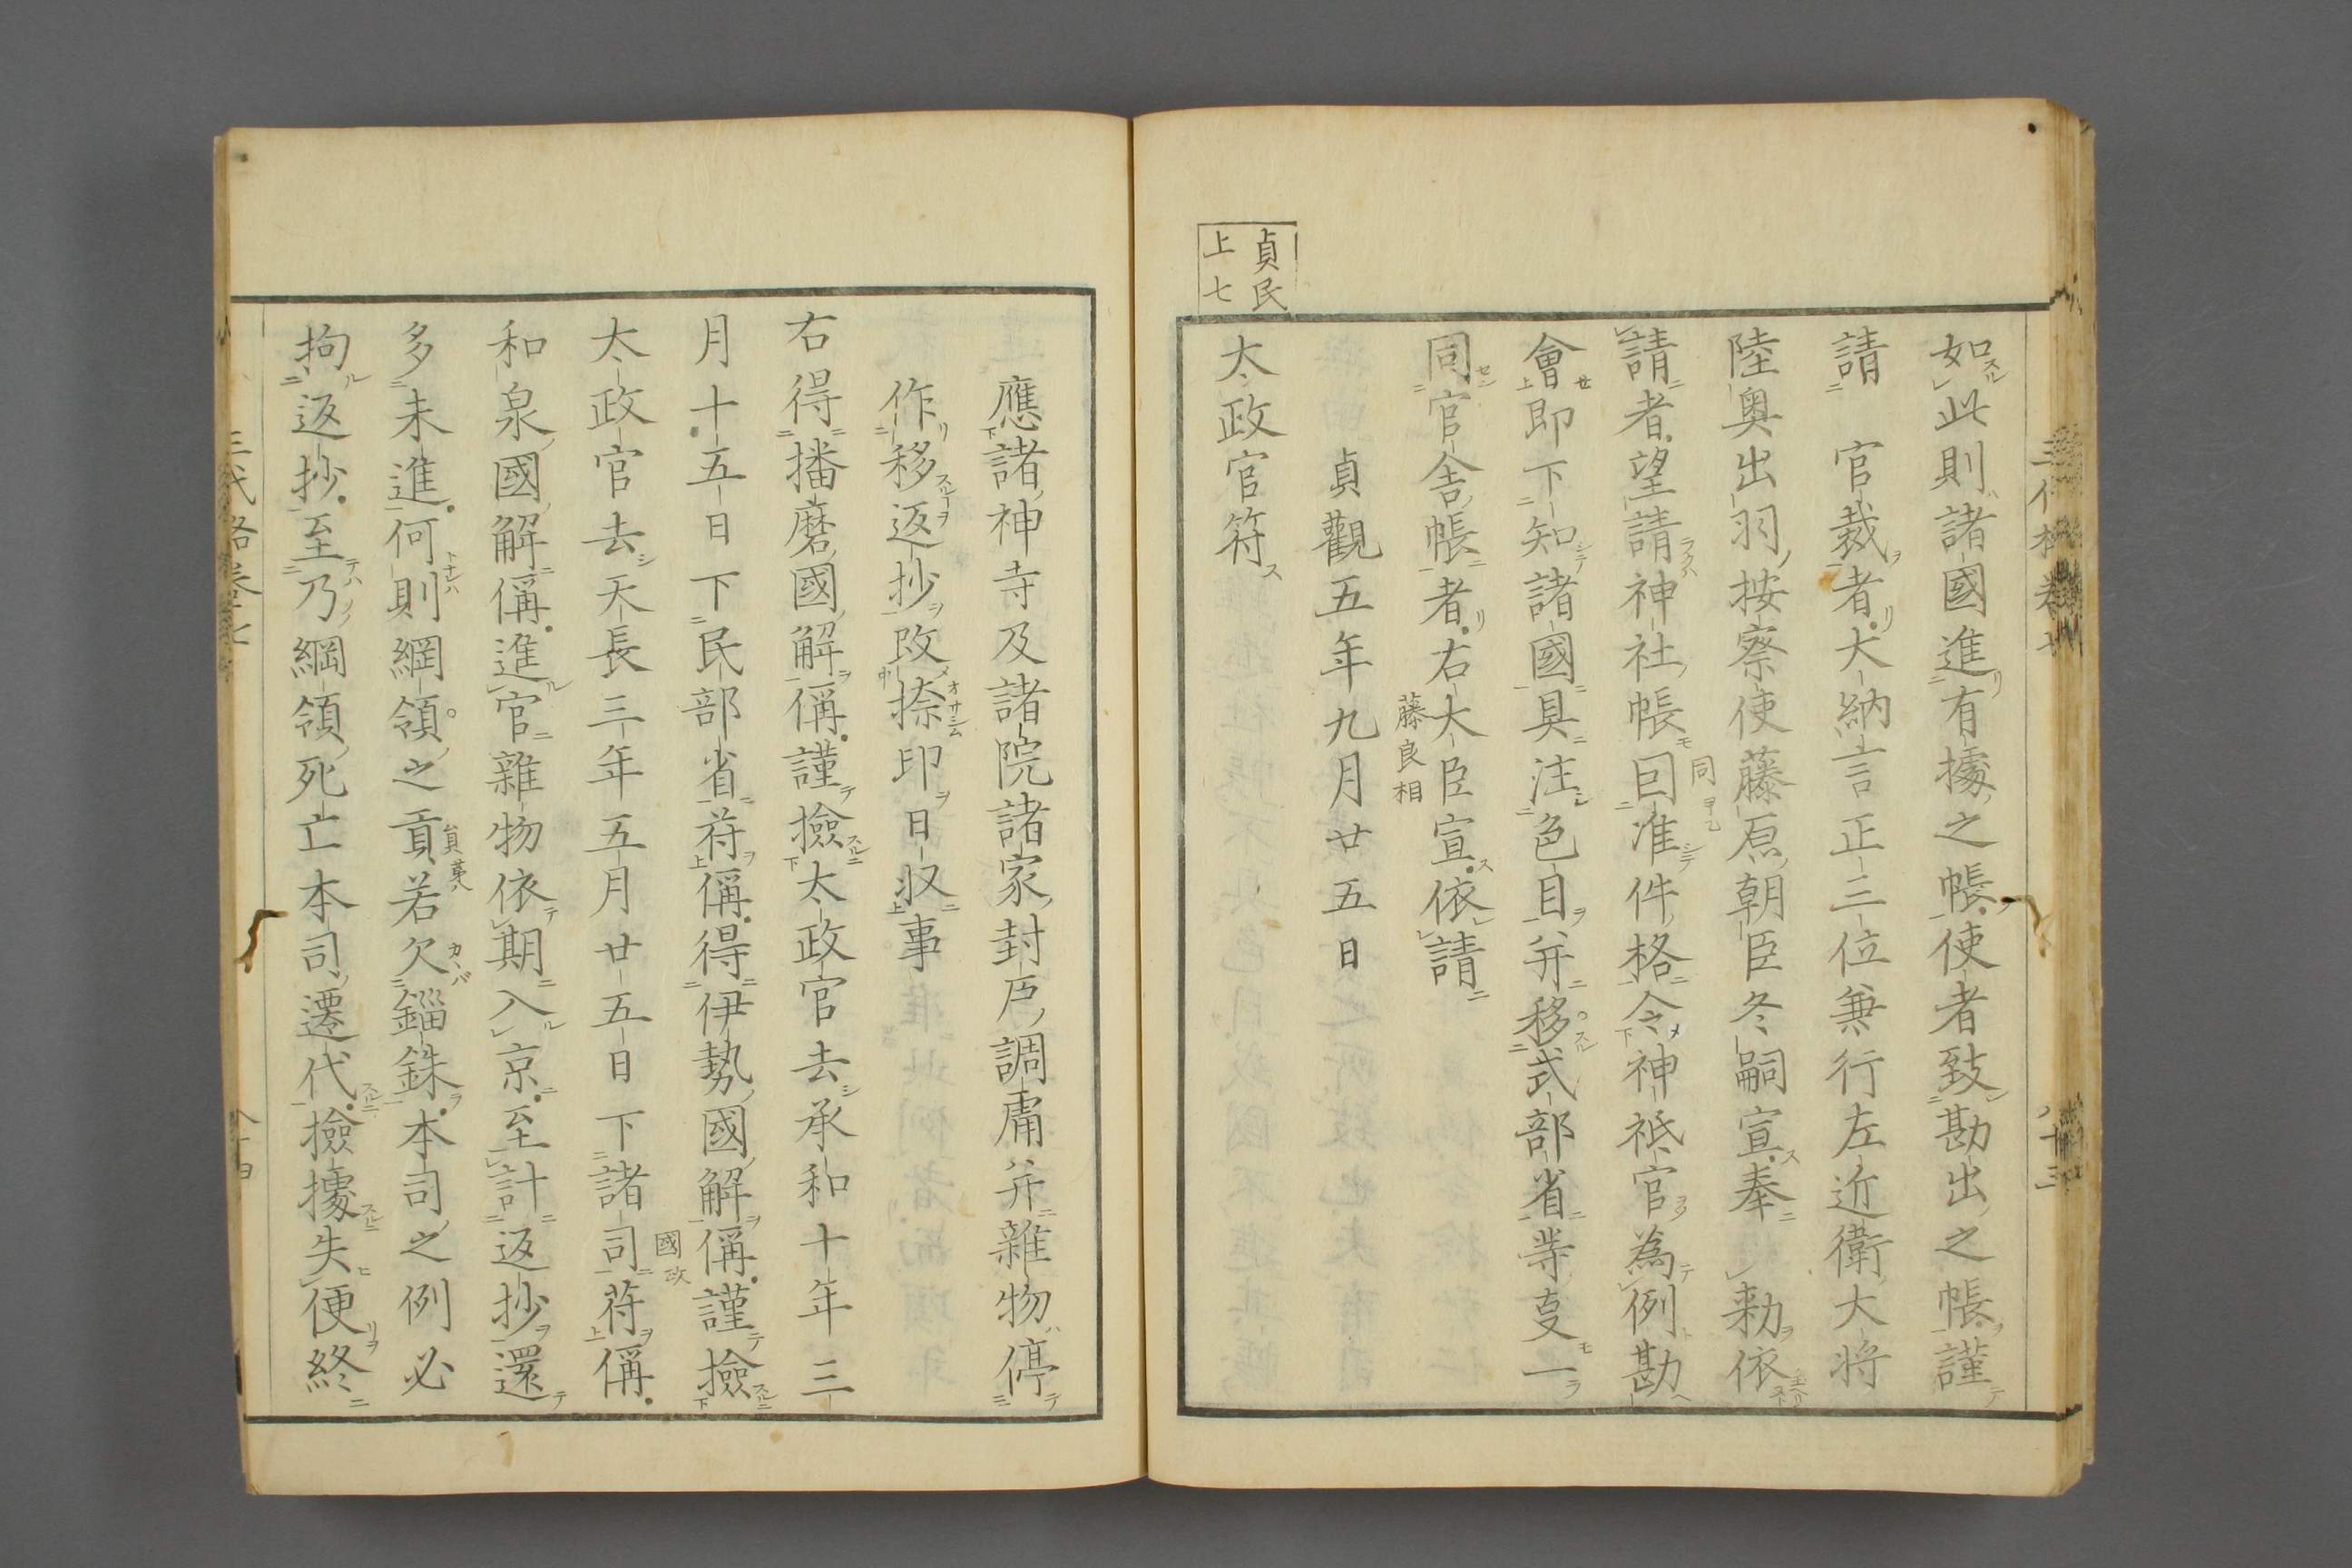 貞民
上七
如此則諸國進有據之帳使者致勘出之帳謹
請　官裁者大納言正三位兼行左近衛大将
陸奥出羽按察使藤原朝臣冬嗣宣奉　勅依
請者望請神社帳囙准件格令神祇官為例勘
會即下知諸國具注色目并移式部省䒭㕝一
同官舎帳者右大臣宣依請
藤良相
貞觀五年九月廿五日
太政官符
應諸神寺及諸院諸家封戸調庸并雜物停
作移返抄改捺印日収事
右得播磨國解偁謹撿太政官去承和十年三
月十五日下民部省苻偁得伊勢國解偁謹撿
太政官去天長三年五月廿五日下諸司苻偁
和泉國解偁進官雜物依期入京至計返抄還
多未進何則綱領之貢若欠錙銖本司之例必
拘返抄至乃綱領死亡本司遷代撿據失便終